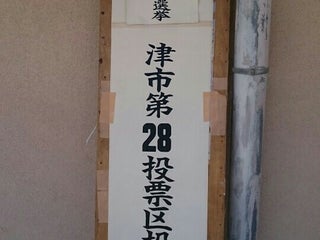 選挙
津市第28投票区投